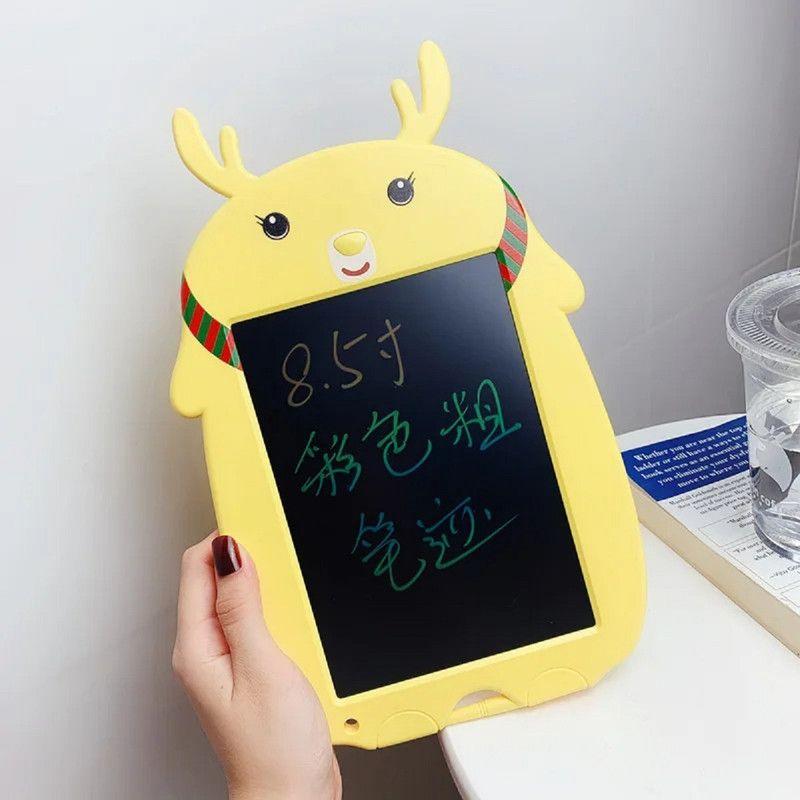 8.5寸
彩色粗
笔迹
Whether you are near the top
ladder or still have ways to
book serves as an essential
you eliminate your